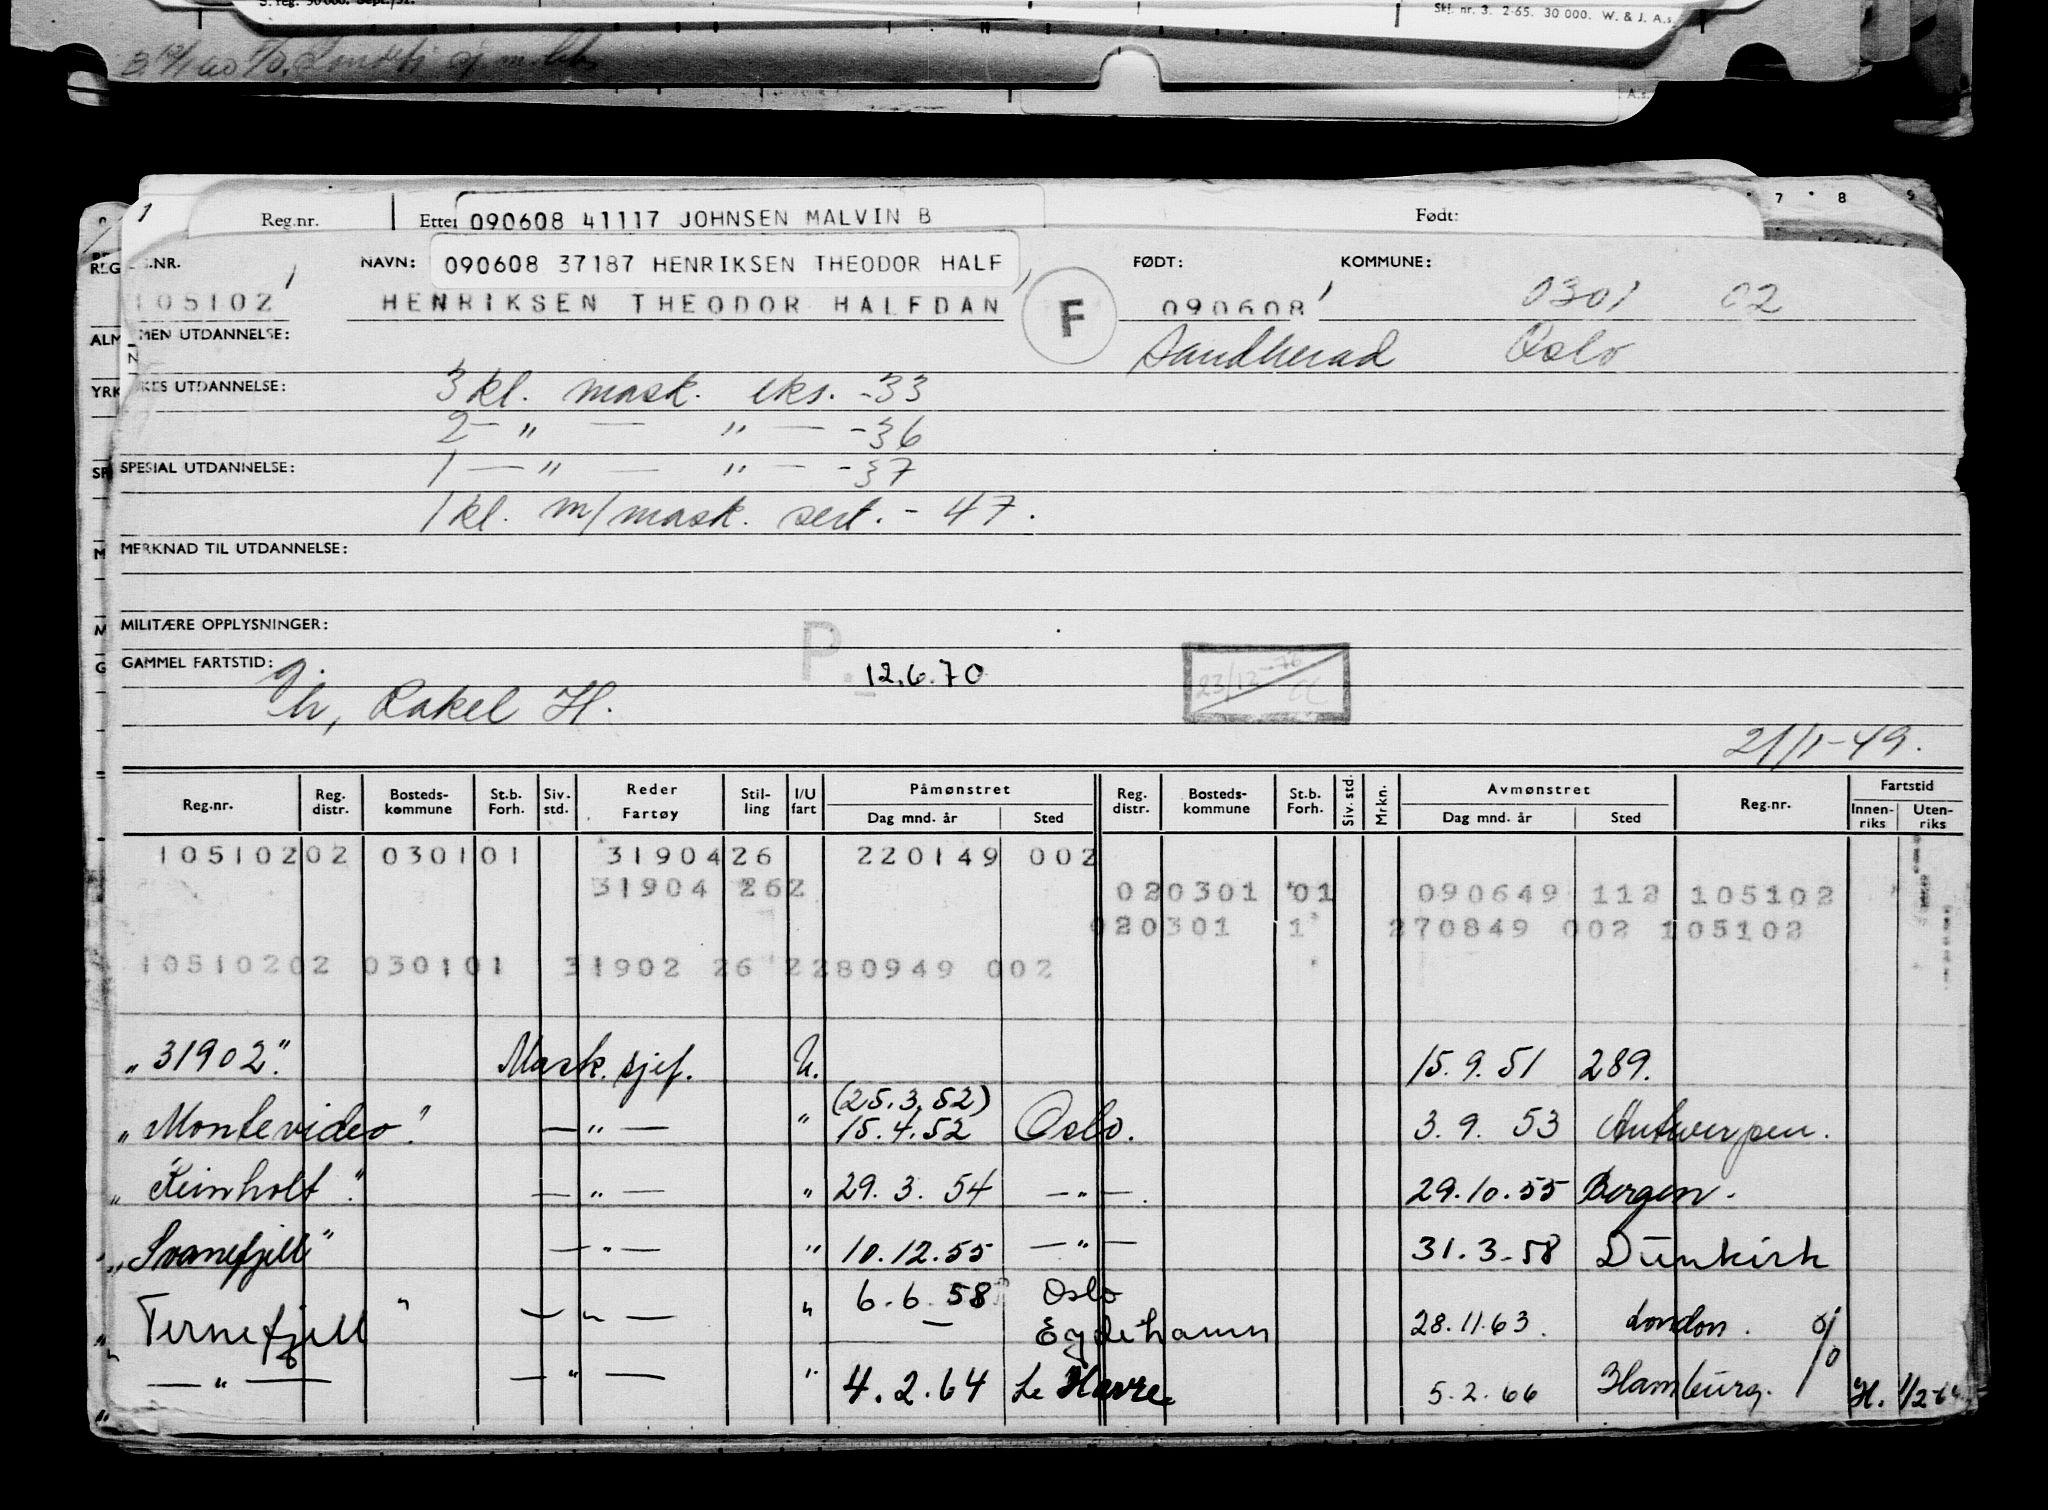 S. reg. 50 000. Sept./52.
Skj. nr. 3. 2-65. 30 000. W. & J. A.s.
A.s.
1
Reg.nr. Etter 090608 41117 JOHNSEN MALVIN B Født: 7 8 9
REG .NR. NAVN: 090608 37187 HENRIKSEN THEODOR HALF FØDT: KOMMUNE:
105102 HENRIKSEN THEODOR HALFDAN F 090608 0301 02
ALM MEN UTDANNELSE: Sandherad Oslo
YRK KES UTDANNELSE: 3 kl. mask. eks. -33
2 — " — " — -36
SPESIAL UTDANNELSE: 1 — " — " — -37
1 kl. m/mask. sert. - 47.
MERKNAD TIL UTDANNELSE:
MILITÆRE OPPLYSNINGER:
GAMMEL FARTSTID: g. P. 12.6.70 23/12-76
h, Rakel H.
21/1-49.
Reg.nr. Reg. distr. Bosteds-kommune St.b. Forh. Siv. std. Reder Fartøy Stil-ling I/U fart Påmønstret Dag mnd. år Sted Reg. distr. Bosteds-kommune St.b. Forh. Siv. std. Mrkn. Avmønstret Dag mnd. år Sted Reg.nr. Fartstid Innen-riks Uten-riks
10510202 030101 3190426 220149 002
31904 262 020301 01 090649 112 105102
020301 1 270849 002 105102
10510202 030101 31902 26 2280949 002
"31902". Mask.sjef. U. 15.9.51 289.
(25.3.52)
"Montevideo". — " — " 15.4.52 Oslo. 3.9.53 Antwerpen.
"Reinholt". — " — " 29.3.54 — " —. 29.10.55 Bergen.
"Svanefjell" — " — " 10.12.55 — " — 31.3-58 Dunkirk
6.6.58 Oslo
"Ternefjell" — " — " — Eydehamn 28.11.63. London. %
— " — — " — " 4.2.64 Le Havre 5.2.66 Hamburg. H. 1/2-6